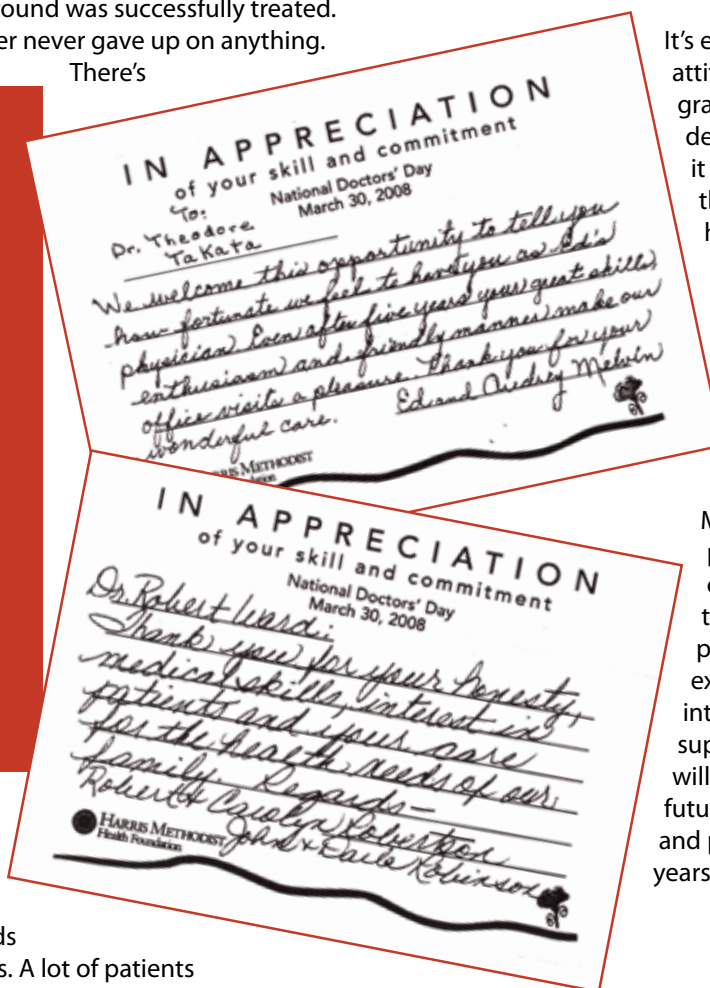 ound was successfully treated.
er never gave up on anything.
There's
IN APPRECIATION
of your skill and commitment
National Doctors' Day
March 30, 2008
To:
Dr. Theodore
Takata
We welcome this opportunity to tell you
how fortunate we feel to have you as Ed's
physician. Even after five years your great skills,
enthusiasm and friendly manner make our
office visits a pleasure. Thank you for your
wonderful care.
Ed and Audrey Melvin
RRIS METHODIST
IN APPRECIATION
of your skill and commitment
National Doctors' Day
March 30, 2008
Dr. Robert Ward:
Thank you for your honesty,
medical skills, interest in
patients and your care
for the health needs of our
family. Regards—
Robert & Carolyn Robertson
John & Darla Robinson
HARRIS METHODIST
Health Foundation
It's e
atti
gra
de
it
th
h
M
p
t
p
ex
int
sup
will
futu
and p
years
ds
s. A lot of patients